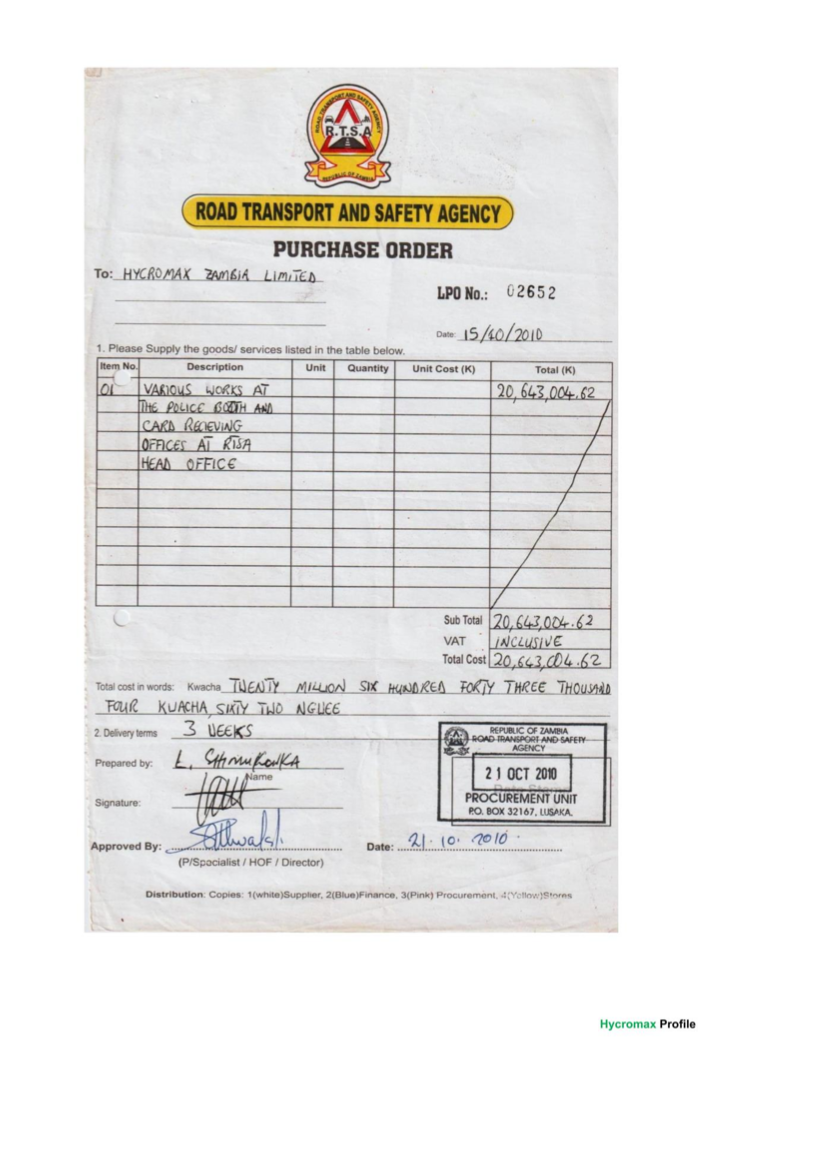 ROAD TRANSPORT AND SAFETY AGENCY
R.T.S.A
REPUBLIC OF ZAMBIA
ROAD TRANSPORT AND SAFETY AGENCY
PURCHASE ORDER
To: HYCROMAX ZAMBIA LIMITED
LPO No.: 02652
Date: 15/10/2010
1. Please Supply the goods/ services listed in the table below.
Item No. Description Unit Quantity Unit Cost (K) Total (K)
01 VARIOUS WORKS AT 20,643,004.62
THE POLICE BOOTH AND
CARD RECIEVING
OFFICES AT RTSA
HEAD OFFICE
Sub Total 20,643,004.62
VAT INCLUSIVE
Total Cost 20,643,004.62
Total cost in words: Kwacha TWENTY MILLION SIX HUNDRED FORTY THREE THOUSAND
FOUR KWACHA, SIXTY TWO NGWEE
2. Delivery terms 3 WEEKS
REPUBLIC OF ZAMBIA
ROAD TRANSPORT AND SAFETY
AGENCY
21 OCT 2010
PROCUREMENT UNIT
P.O. BOX 32167, LUSAKA.
Prepared by: L.
Name
Signature:
Approved By: Date: 21.10.2010.
(P/Specialist / HOF / Director)
Distribution: Copies: 1(white)Supplier, 2(Blue)Finance, 3(Pink) Procurement, 4(Yellow)Stores
Hycromax Profile